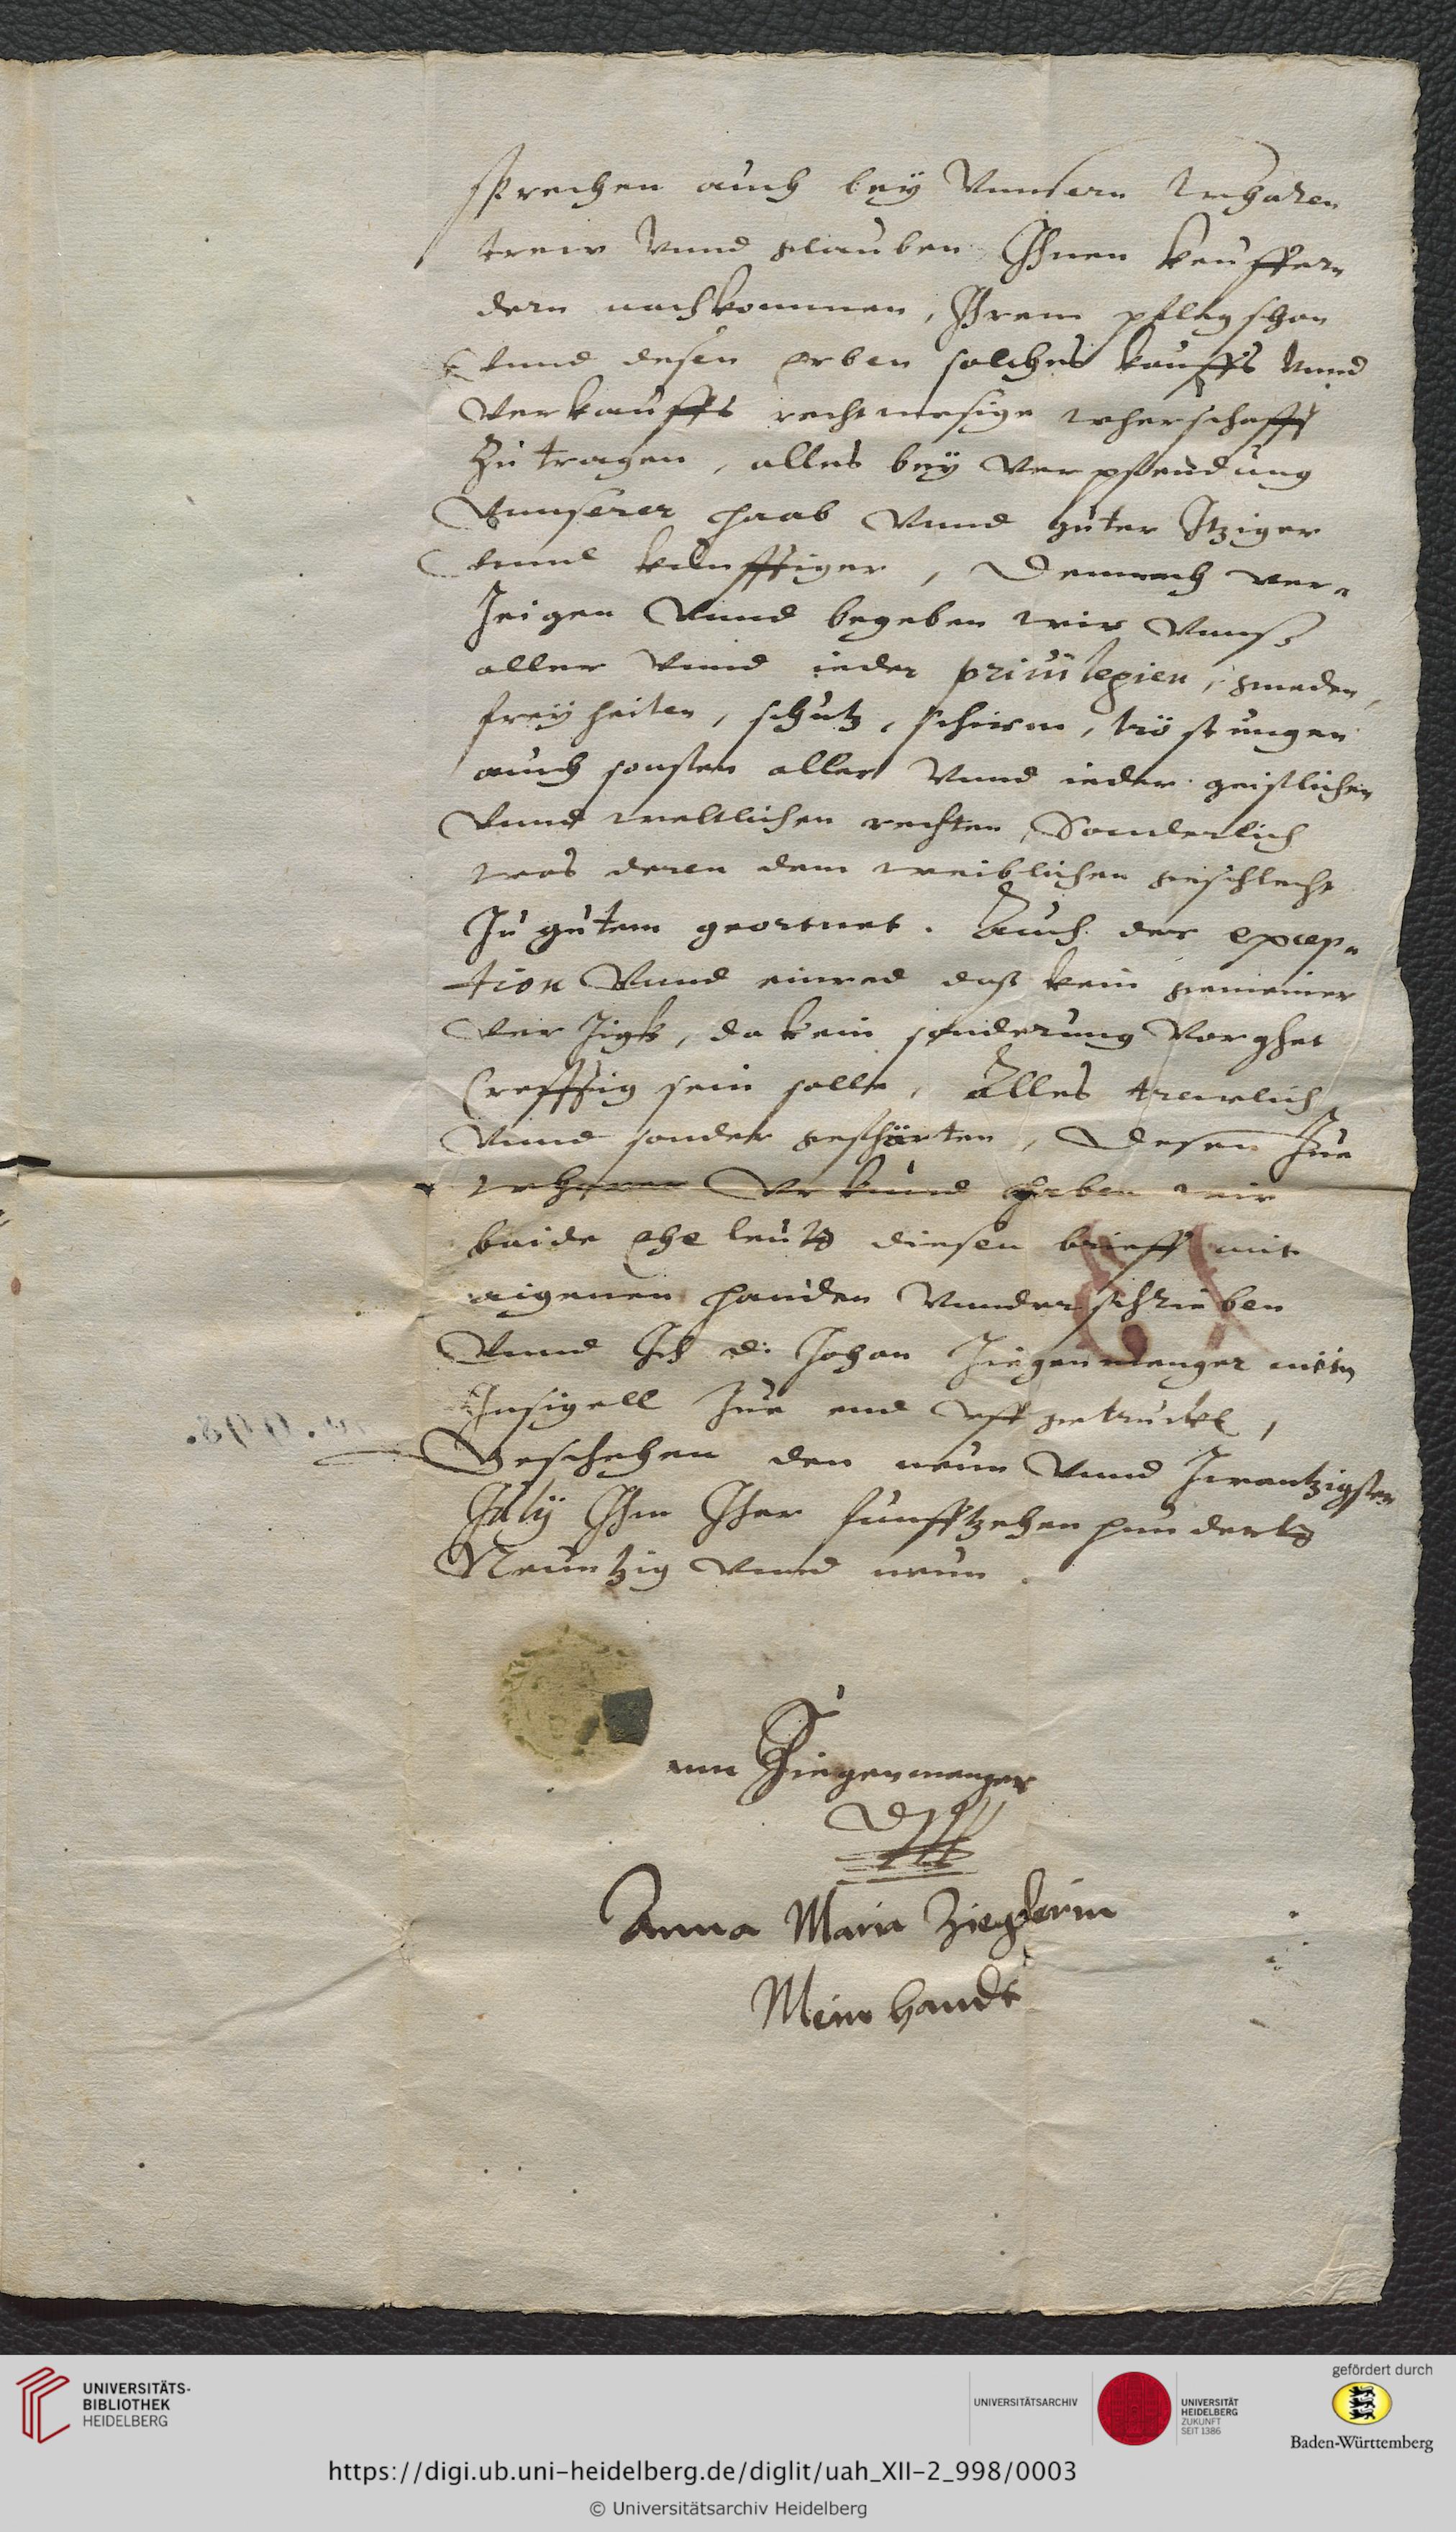 sprechen auch bey Vnnsern wharen
trew Vnnd glauben Ihnen keuffern
dern nachkommen, Ihrem pflegschon
Vnnd desen erben solches kauffs Vnnd
Verkauffs rechtmesige wherschafft
Zu tragen, alles bey Verpfendung
Vnnserer haab Vnnd guter Itziger
Vnnd kunfftiger, Demnach ver-
zeigen Vnnd begeben wir Vnnß
aller Vnnd ieder priuilegien, gnaden,
freyheiten, schutz, schirm, tröstungen
auch sonsten aller Vnnd ieder geistlichen
Vnnd weltlichen rechten, Sonderlich
was deren dem weiblichen geschlecht
Zu gutem geortnet. Auch der excep-
tion Vnnd einred daß kein gemeiner
Verzigk, da kein sonderung Vorghet
Crefftig sein solle, Alles trewlich
Vnnd sonder geffärten, Desen Zue
wharen Vrkund haben wir
beide Ehe leutt diesen brieff mit
aigenen handen Vnnderschrieben
Vnnd Ich D: Johan Ziegenmenger mein
Insigell Zue end vff getruckt,
Geschehen den neun Vnnd Zwantzigsten
July Ihm Ihar funfftzehen hundertt
Neuntzig Vnnd neun.
Ziegenmenger
D
Anna Maria Zieglerin
Mein handt
UNIVERSITÄTS-
BIBLIOTHEK
HEIDELBERG
UNIVERSITÄTSARCHIV
UNIVERSITÄT
HEIDELBERG
ZUKUNFT
SEIT 1386
gefördert durch
Baden-Württemberg
https://digi.ub.uni-heidelberg.de/diglit/uah_XII-2_998/0003
© Universitätsarchiv Heidelberg